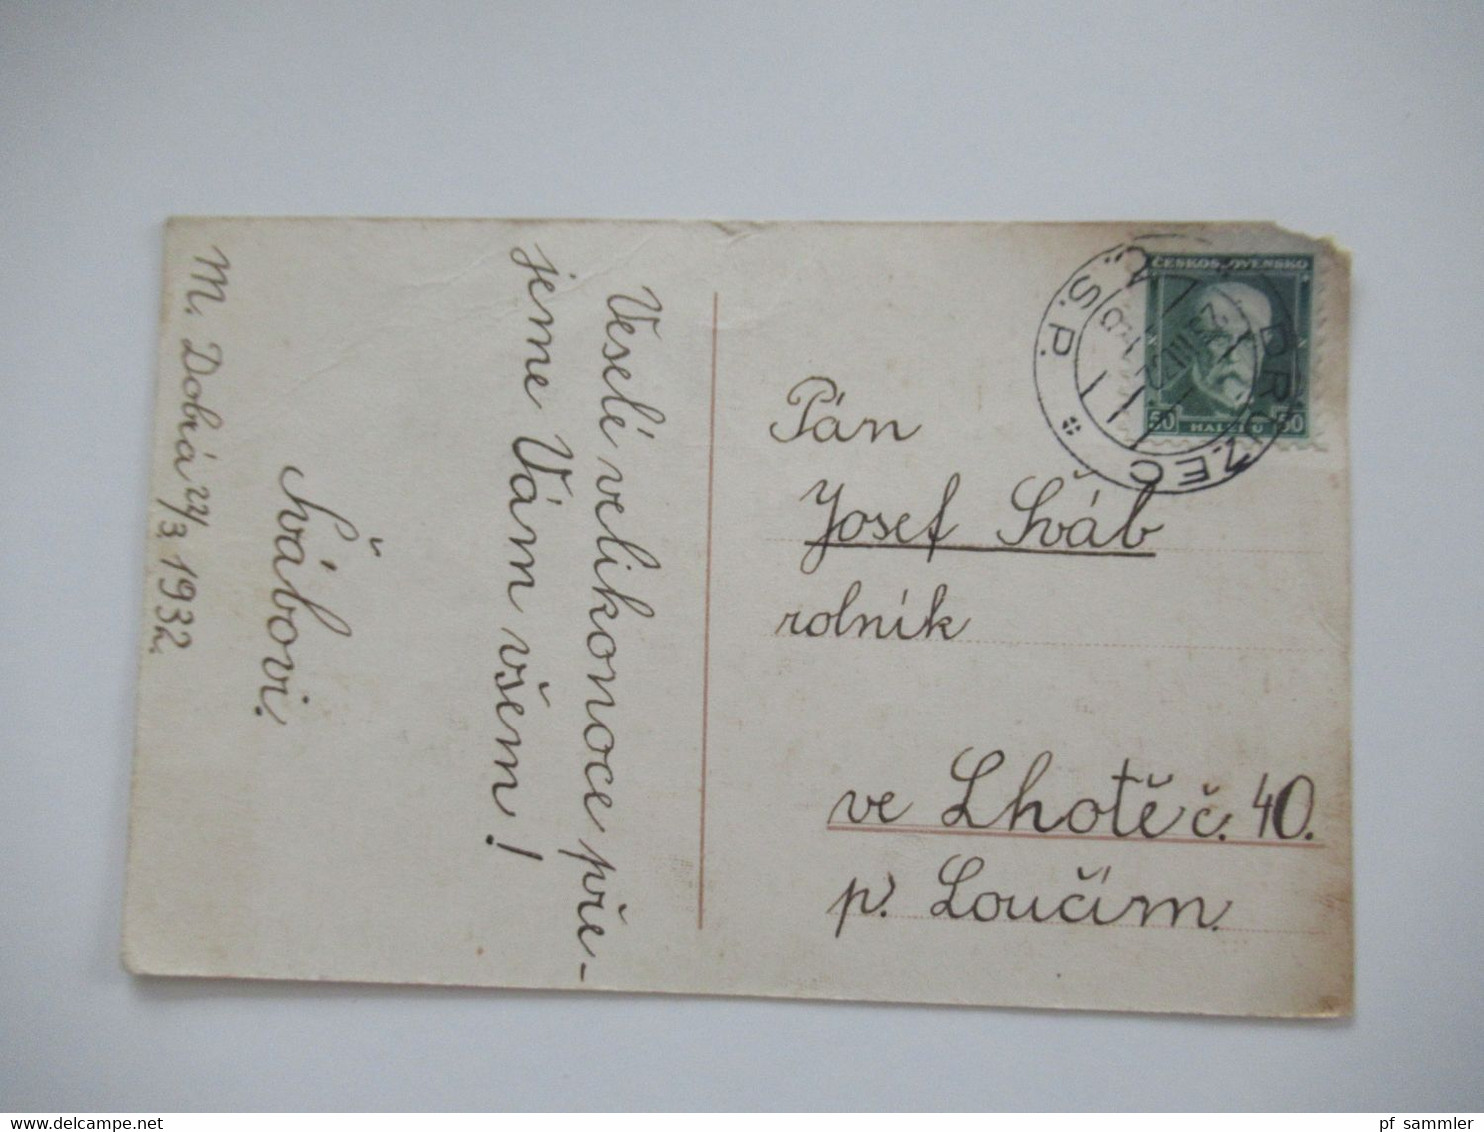 M. Dobrá 22/3 1932
Veselé velikonoce pře-
jeme Vám všem!
Švábovi.
ČESKOSLOVENSKO
50 HALÉŘŮ 50
Č.S.P.
Pán
Josef Šváb
rolník
ve Lhotě č. 40.
p. Loučím.
pf_sammler
www.delcampe.net